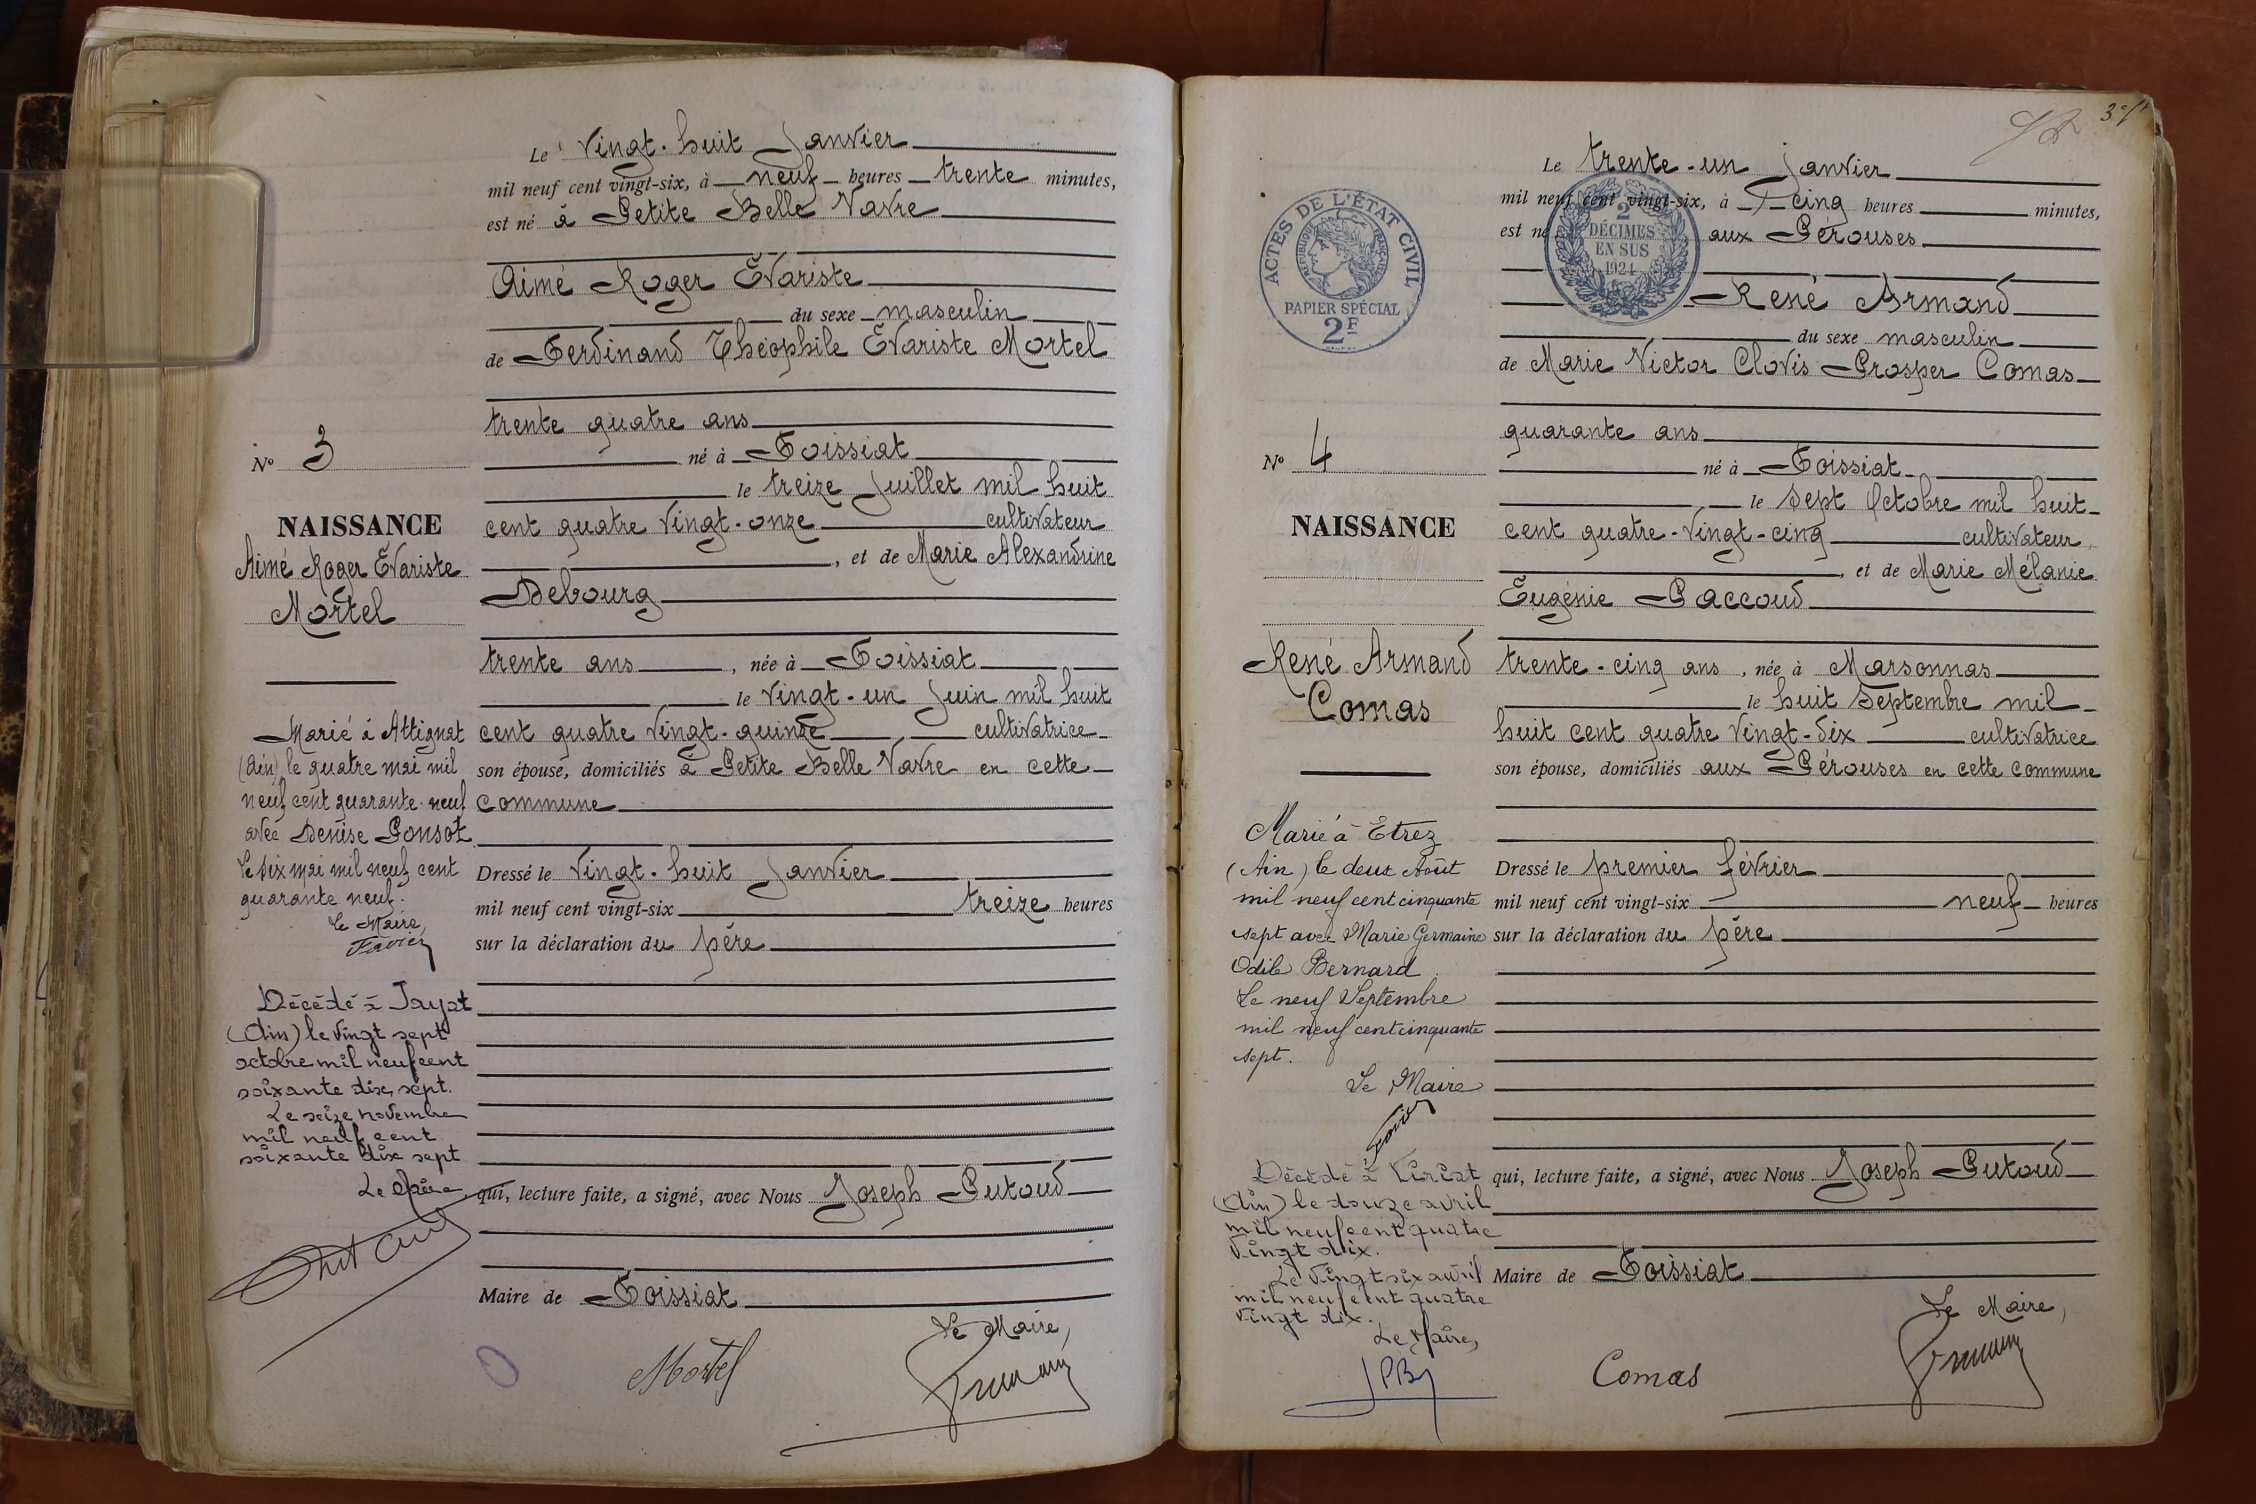 Le Vingt-huit Janvier
mil neuf cent vingt-six, à neuf heures trente minutes,
est né à Petite Belle Vavre
Aimé Roger Evariste
du sexe masculin
de Ferdinand Théophile Evariste Mortel
trente quatre ans
né à Foissiat
le treize Juillet mil huit
cent quatre vingt-onze cultivateur
, et de Marie Alexandrine
Debourg
trente ans , née à Foissiat
le vingt-un Juin mil huit
cent quatre vingt-quinze cultivatrice
son épouse, domiciliés à Petite Belle Vavre en cette
commune
Dressé le vingt-huit Janvier
mil neuf cent vingt-six treize heures
sur la déclaration du père
qui, lecture faite, a signé, avec Nous Joseph Putoud
Maire de Foissiat
Le Maire,
Mortel
No 3
NAISSANCE
Aimé Roger Evariste
Mortel
Marié à Attignat
(Ain) le quatre mai mil
neuf cent quarante-neuf
avec Denise Ponsot
Le dix mai mil neuf cent
quarante neuf.
Le Maire,
Favier
Décédé à Jayat
(Ain) le vingt sept
octobre mil neuf cent
soixante dix sept.
Le seize novembre
mil neuf cent
soixante dix sept
Le Maire
Le trente-un Janvier
mil neuf cent vingt-six, à cinq heures minutes,
est né aux Pérouses
René Armand
du sexe masculin
de Marie Victor Clovis Prosper Comas
quarante ans
né à Foissiat
le sept Octobre mil huit
cent quatre-vingt-cinq cultivateur
, et de Marie Mélanie
Eugénie Paccoud
trente-cinq ans , née à Marsonnas
le huit Septembre mil
huit cent quatre vingt-dix cultivatrice
son épouse, domiciliés aux Pérouses en cette commune
Dressé le premier février
mil neuf cent vingt-six neuf heures
sur la déclaration du père
qui, lecture faite, a signé, avec Nous Joseph Putoud
Maire de Foissiat
Le Maire,
Comas
ACTES DE L'ÉTAT CIVIL
RÉPUBLIQUE FRANÇAISE
PAPIER SPÉCIAL
2F
2
DÉCIMES
EN SUS
1924
No 4
NAISSANCE
René Armand
Comas
Marié à Etrez
(Ain) le deux Août
mil neuf cent cinquante
sept avec Marie Germaine
Odile Bernard
Le neuf Septembre
mil neuf cent cinquante
sept.
Le Maire
Favier
Décédé à Viriat
(Ain) le douze avril
mil neuf cent quatre
vingt dix.
Le vingt six avril
mil neuf cent quatre
vingt dix.
Le Maire,